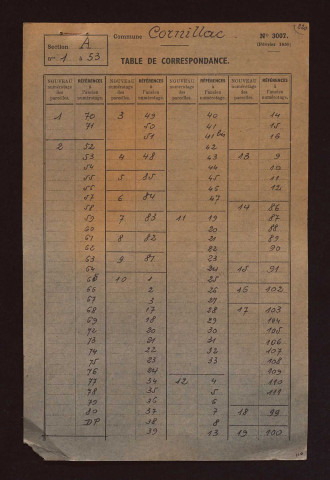 Commune Cornillac
N° 3007.
Section A
n° 1 à 53
TABLE DE CORRESPONDANCE.
NOUVEAU numérotage des parcelles. RÉFÉRENCES à l'ancien numérotage. NOUVEAU numérotage des parcelles. RÉFÉRENCES à l'ancien numérotage. NOUVEAU numérotage des parcelles. RÉFÉRENCES à l'ancien numérotage. NOUVEAU numérotage des parcelles. RÉFÉRENCES à l'ancien numérotage.
1 70 3 49 40 14
71 50 41 15
51 16
2 52 42
53 4 48 43 13 9
54 44 10
55 5 85 45 11
46 12
57 6 84 47
58 14 86
59 7 83 11 19 87
60 20 88
61 8 82 21 89
62 22 90
63 9 81 23
64 24 15 91
10 1 25
66 2 26 16 102
67 3 27
68 17 28 17 103
69 18 29 104
72 20 30 105
73 21 31 106
74 22 32 107
75 23 33 108
76 24 109
77 34 12 4 110
78 35 5 111
79 36 6
80 37 7 18 99
DP 38 8
39 13 19 100